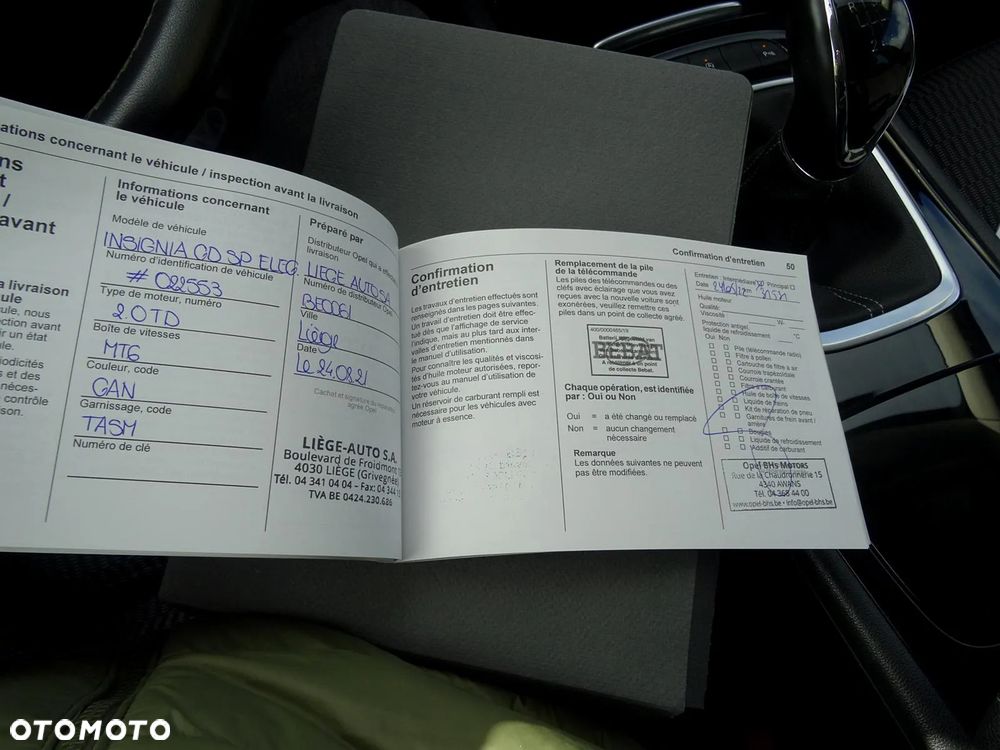 ations concernant le véhicule / inspection avant la livraison
ns
t
/
avant
a livraison
cule
cule, nous
ection avant
ir un état
ule.
iodicités
s et des
néces-
e contrôle
ison.
Informations concernant
le véhicule
Modèle de véhicule
INSIGNIA GD SP ELEG
Numéro d'identification de véhicule
# 022553
Type de moteur, numéro
2.0TD
Boîte de vitesses
MT6
Couleur, code
GAN
Garnissage, code
TASM
Numéro de clé
Préparé par
Distributeur Opel qui a effectué
livraison
LIEGE AUTO SA
Numéro de distributeur Opel
BE0061
Ville
Liège
Date
le 24.08.21
Cachet et signature du réparateur
agréé Opel
LIÈGE-AUTO S.A.
Boulevard de Froidmont
4030 LIÈGE (Grivegnée)
Tél. 04 341 04 04 - Fax: 04 344 1
TVA BE 0424.230.686
Confirmation d'entretien 50
Confirmation
d'entretien
Les travaux d'entretien effectués sont
renseignés dans les pages suivantes.
Un travail d'entretien doit être effec-
tué dès que l'affichage de service
l'indique, mais au plus tard aux inter-
valles d'entretien mentionnés dans
le manuel d'utilisation.
Pour connaître les qualités et viscosi-
tés d'huile moteur autorisées, repor-
tez-vous au manuel d'utilisation de
votre véhicule.
Un réservoir de carburant rempli est
nécessaire pour les véhicules avec
moteur à essence.
Remplacement de la pile
de la télécommande
Les piles des télécommandes ou des
clefs avec éclairage que vous avez
reçues avec la nouvelle voiture sont
exonérées, veuillez remettre ces
piles dans un point de collecte agréé.
BEBAT
de collecte Bebat.
Chaque opération, est identifiée
par : Oui ou Non
Oui = a été changé ou remplacé
Non = aucun changement
nécessaire
Remarque
Les données suivantes ne peuvent
pas être modifiées.
Entretien : Intermédiaire Principal
Date
Huile moteur
Qualité,
Viscosité W-
Protection antigel,
liquide de refroidissement °C
Oui Non
Pile (télécommande radio)
Filtre à pollen
Cartouche de filtre à air
Courroie trapézoïdale
Courroie crantée
Filtre à carburant
Huile de boîte de vitesses
Liquide de freins
Kit de réparation de pneu
Garnitures de frein avant /
arrière
Bougies
Liquide de refroidissement
Additif de carburant
Opel BHs MOTORS
Rue de la Chaudronnerie 15
4340 AWANS
Tél. 04 368 44 00
www.opel-bhs.be • info@opel-bhs.be
OTOMOTO